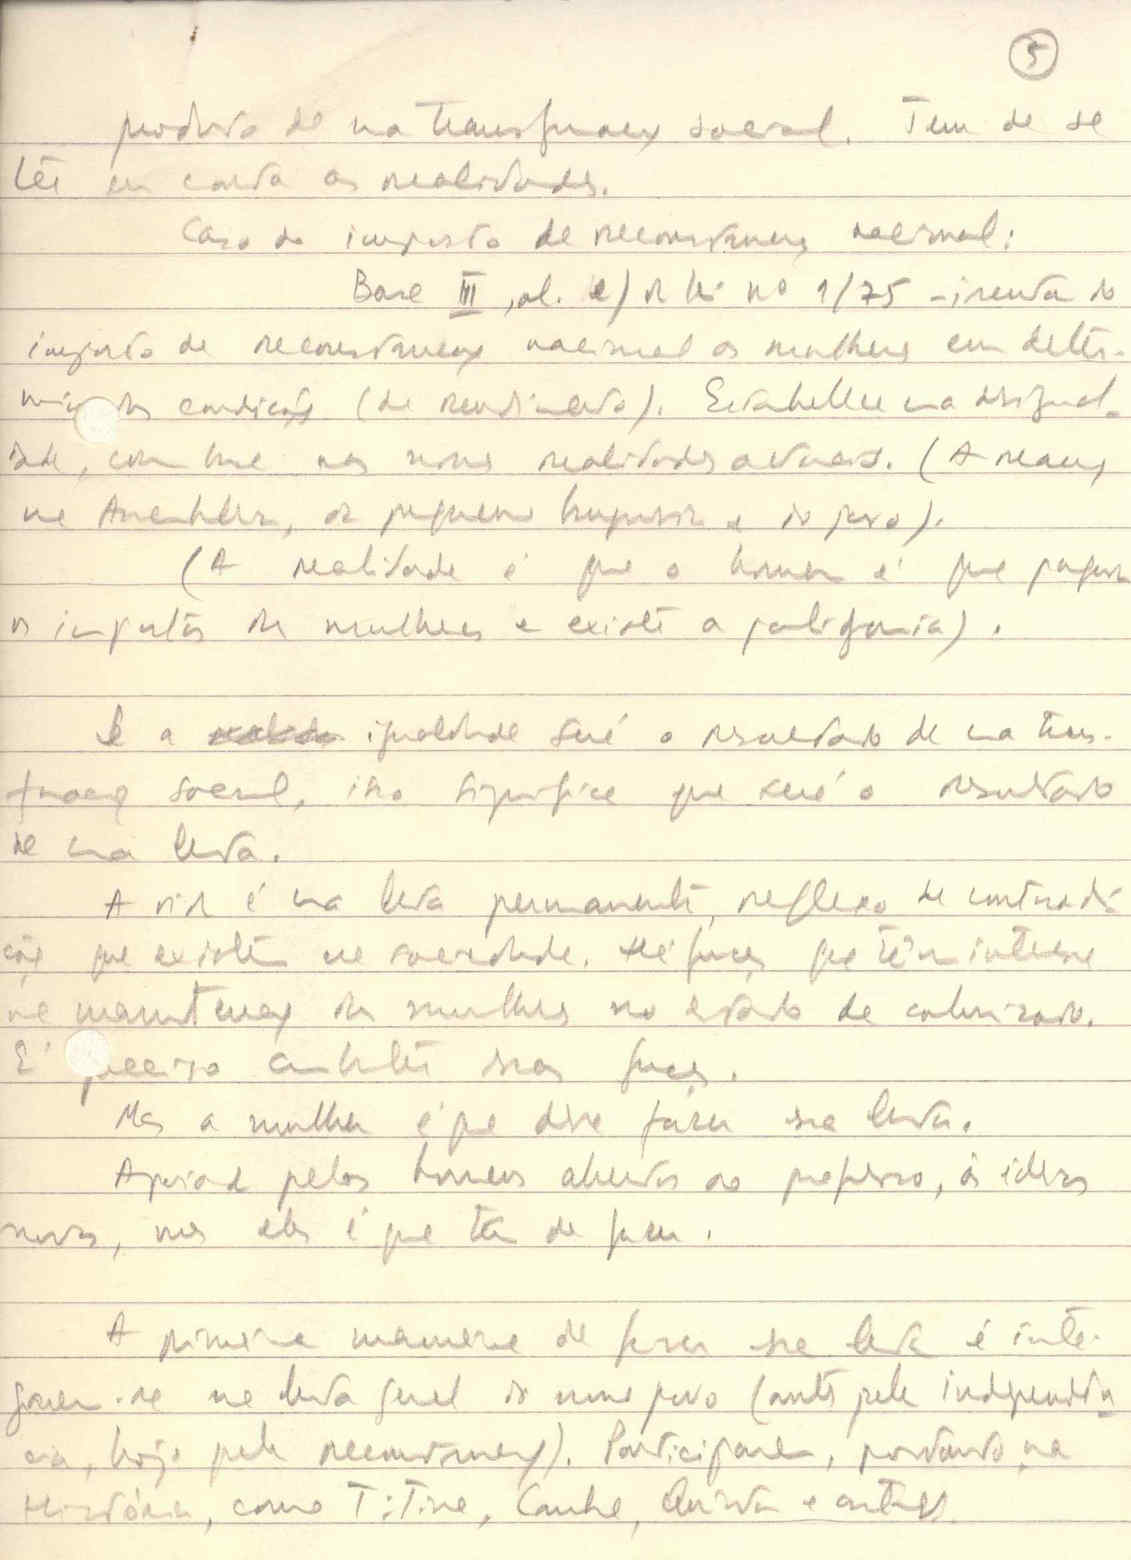 5
produto de uma transformação social. Tem de se
ter em conta as realidades.
Caso do imposto de reconstrução nacional:
Base III, al. e) da lei nº 1/75 - isenta do
imposto de reconstrução nacional as mulheres em deter-
minadas condições (de rendimento). Estabelece uma desigual-
dade, com base nas nossas realidades actuais. (A reacção
na Assembleia, da pequena burguesia e do povo).
(A realidade é que o homem é que pagava
os impostos das mulheres e existe a poligamia).
Se a igualdade será o resultado de uma trans-
formação social, isso significa que será o resultado
de uma luta.
A vida é uma luta permanente, reflexo de contradi-
ções que existem na sociedade. Há forças que têm interesse
na manutenção das mulheres no estado de colonizado.
É preciso combater essas forças.
Mas a mulher é que deve fazer essa luta.
Apoiada pelos homens abertos ao progresso, às ideias
novas, mas elas é que têm de fazer.
A primeira maneira de fazer essa luta é inte-
grarem-se na luta geral do nosso povo (antes pela independên-
cia, hoje pela reconstrução). Participarem, portanto, na
História, como Titina, Canhe, Quinta e outras